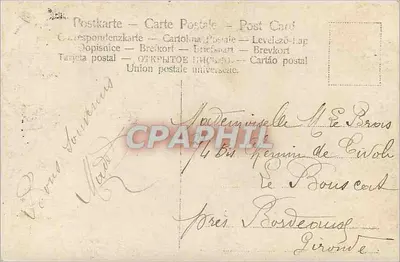 Postkarte – Carte Postale – Post Card
Correspondenzkarte – Cartolina Postale – Levelező-Lap
Dopisnice – Brefkort – Briefkaart – Brevkort
Tarjeta postal – ОТКРЫТОЕ ПИСЬМО – Cartão postal
Union postale universelle.
Souvenirs
CPAPHIL
Mademoiselle M Le
74 bis Chemin de Tivoli
Le Bouscat
près Bordeaux
Gironde